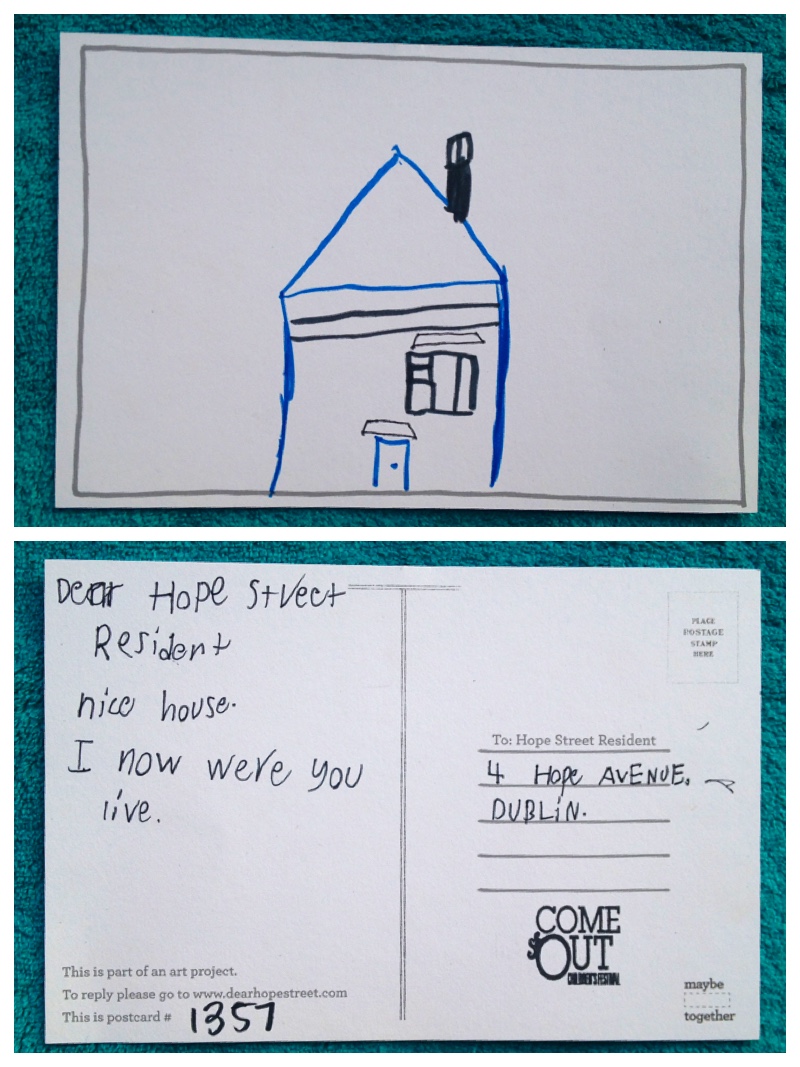 Dear Hope Street
Resident
nice house.
I now were you
live.
This is part of an art project.
To reply please go to www.dearhopestreet.com
This is postcard # 1357
PLACE
POSTAGE
STAMP
HERE
To: Hope Street Resident
4 Hope AVENUE.
DUBLiN.
COME
OUT
CHILDREN'S FESTIVAL
maybe
together